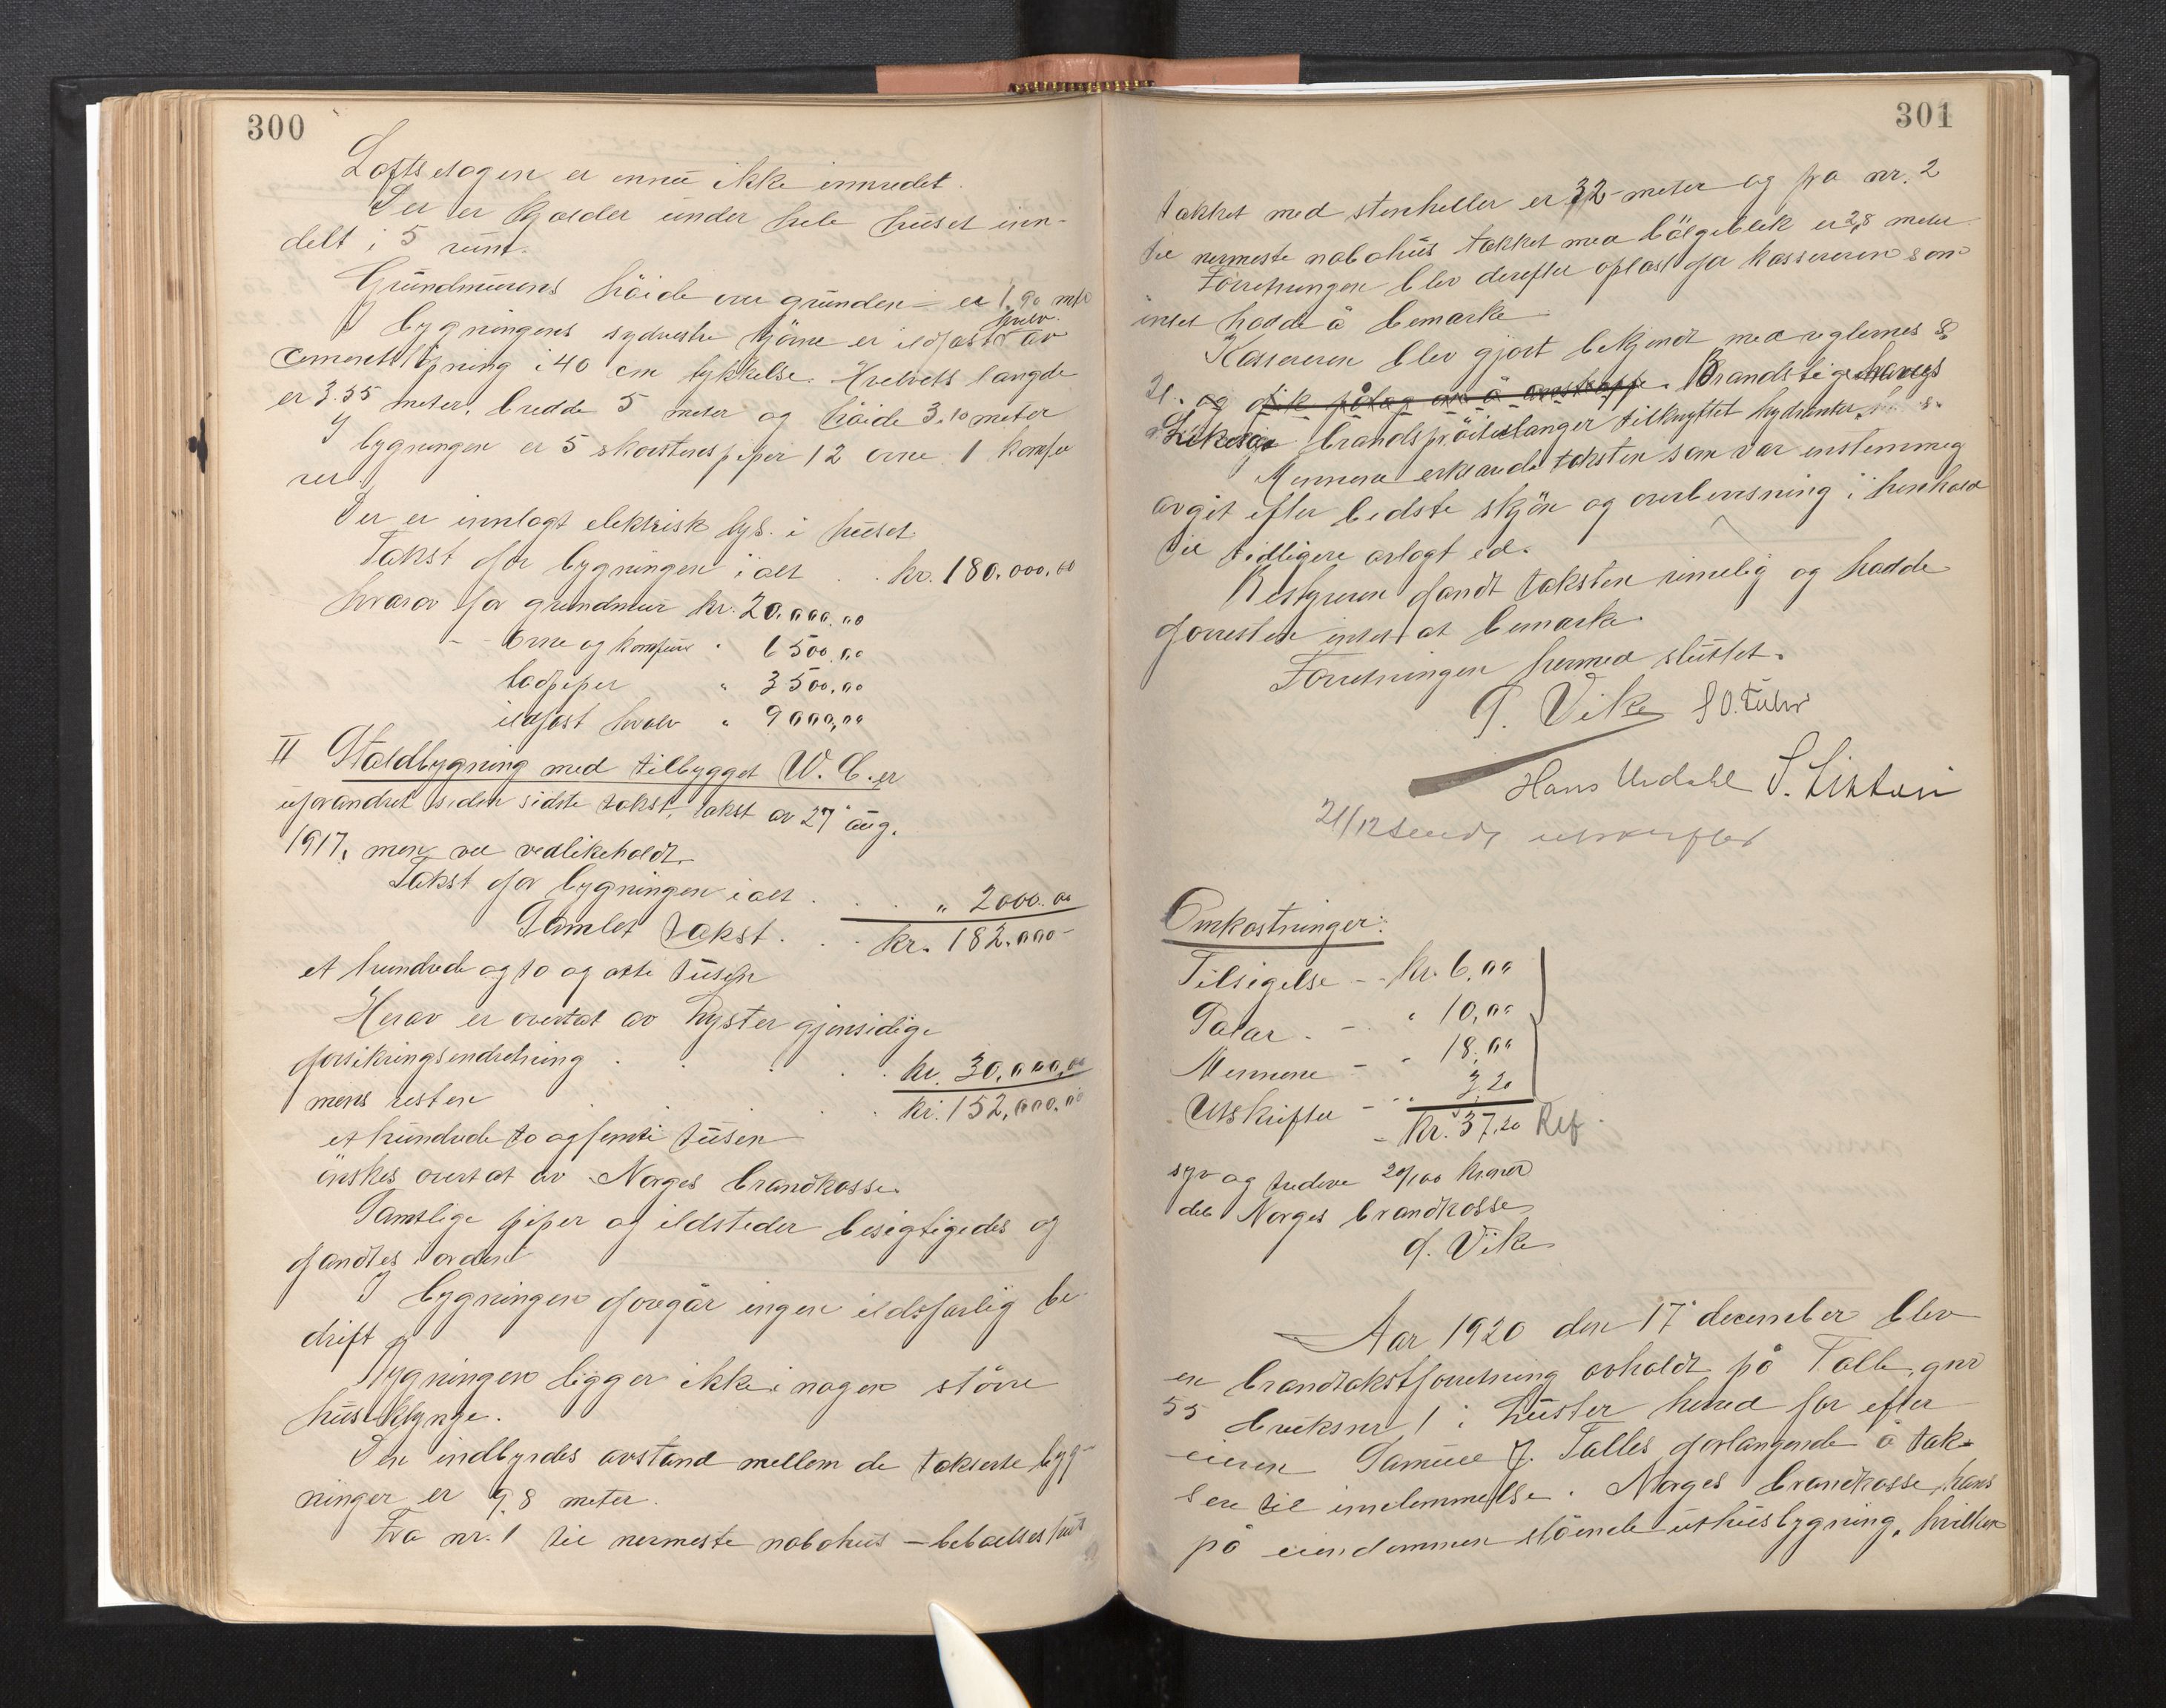 300
Loftsetagen er ennu ikke innredet.
Der er kjælder under hele huset inn-
delt i 5 rum.
Grundmurens höide over grunden er 1,90 mtr
I bygningens sydvestre hjörne er ildfast hvælv av
cementstöpning i 40 cm tykkelse. Hvelvets længde
er 3.55 meter, bredde 5 meter og höide 3.10 meter
I bygningen er 5 skorstenspiper 12 ovne 1 komfu
rer.
Der er innlagt elektrisk lys i huset.
Takst for bygningen i alt . . kr. 180.000,00
hvorav for grundmur kr. 20.000.00
- - Ovne og komfur " 6500,00
lodpiper " 3500,00
ildfast hvælv " 9000,00
II Staldbygning med tilbygget W. C. er
uforandret siden sidste takst, takst av 27 aug.
1917, men vel vedlikeholdt.
Takst for bygningen i alt . . . " 2000.00
Samlet takst . . . kr. 182.000-
et hundrede og to og otti tusen
Herav er overtat av Lyster gjensidige
forsikringsindretning . . . . . kr. 30.000,00
mens resten . . . . kr. 152,000.00
et hundrede to og femti tusen
önskes overtat av Norges brandkasse.
Samtlige piper og ildsteder besigtigedes og
fandtes i orden
I bygningen foregår ingen ildsfarlig be-
drift
Bygningen ligger ikke i nogen större
husklynge.
Den indbyrdes avstand mellem de takserte byg-
ninger er 9,8 meter.
Fra nr. 1 til nermeste nabohus – beboelseshus
301
tækket med stenheller er 32 meter og fra nr. 2
til nermeste nabohus tækket med bölgeblik er 28 meter
Forretningen blev derefter oplæst for kassereren som
intet hadde å bemærke
Kassereren blev gjort bekjendt med reglernes §
21. og fik pålag om å anskaffe. Brandstige haves
Likesaa brandspröiteslanger tilknyttet hydranter
Mennene erklærede taksten som var enstemmeg
avgit efter bedste skjön og overbevisning i henhold
til tidligere avlagt ed.
Bestyreren fandt taksten rimelig og hadde
forresten intet at bemærke.
Forretningen hermed sluttet.
G. Vike
Hans Urdahl
21/12 sendt utskrifter
Omkostninger:
Tilsigelse - - kr. 6,00
Salar. - " 10,00
Mennene - " 18,00
Utskrifter - " 3.20
- Kr. 37,20 Ref.
syv og tredeve 20/100 kroner
deb Norges brandkasse
G. Vike
Aar 1920 den 17 december blev
en brandtakstforretning avholdt på Talle, gnr
55 bruksnr 1 i Luster herred for efter
eieren Samuel J. Talles forlangende å tak-
sere til innlemmelse i Norges brandkasse hans
på eiendommen stående uthusbygning, hvilken